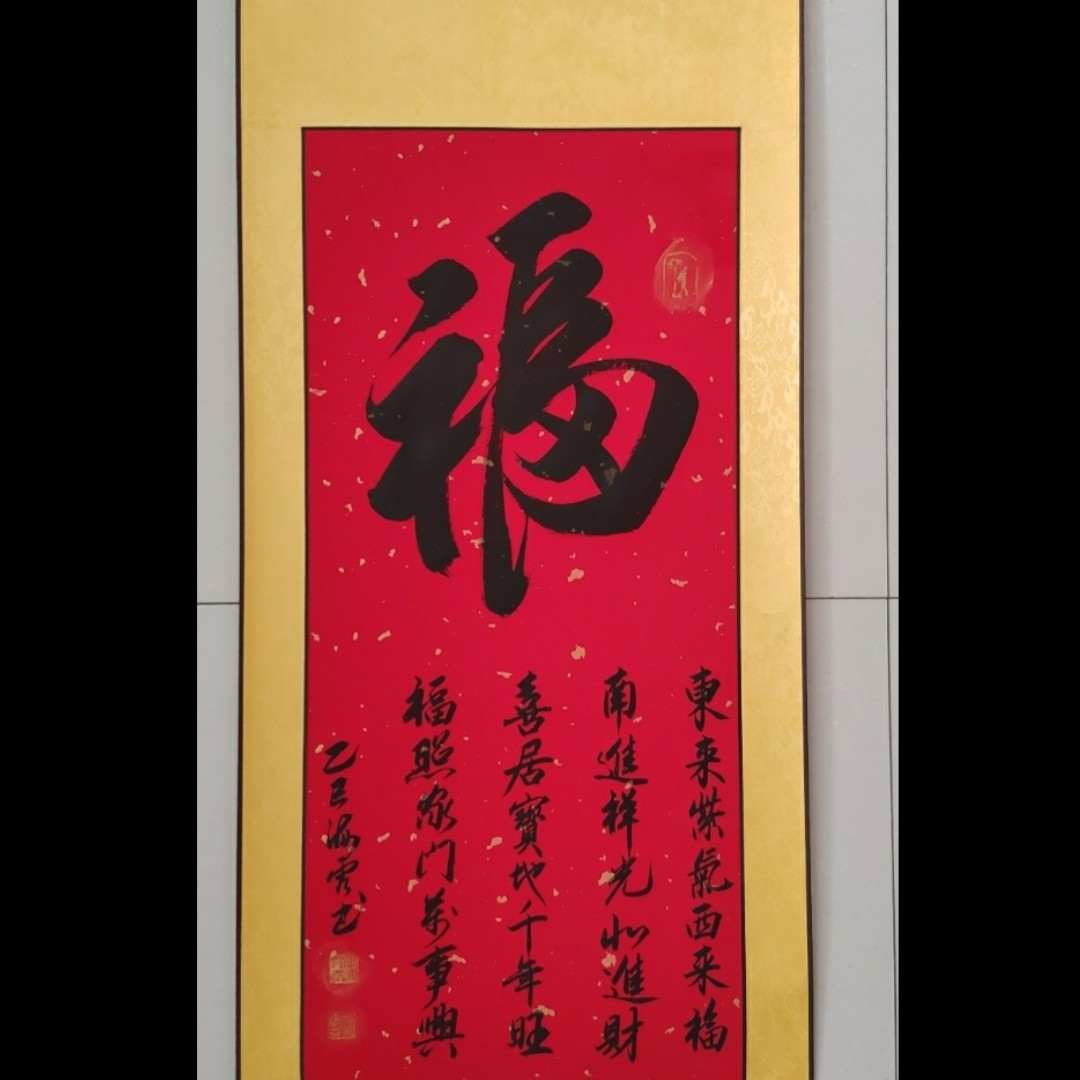 福
東来紫氣西来福
南進祥光北進財
喜居寶地千年旺
福照家门萬事興
乙巳海雲书